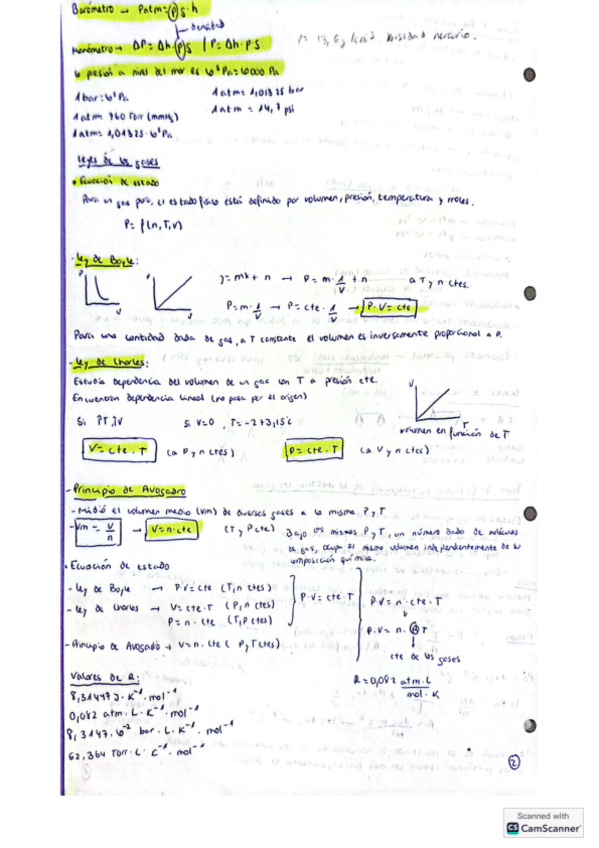 Barómetro → Patm=ρg·h
densidad
Manómetro → ΔP=Δh·ρ·g / P=Δh·ρ·g
mercurio.
presión a nivel del mar es
1 bar = 10⁵ Pa
1 atm = 1,01325 bar
1 atm 760 Torr (mmHg)
1 atm = 14,7 psi
1 atm = 1,01325·10⁵ Pa
Leyes de los gases
• Ecuación de estado
Para un gas puro, el estado físico está definido por volumen, presión, temperatura y moles.
P = f(n,T,V)
- Ley de Boyle:
P
V
P
y = mx + n → P = m·1/V + n
a T y n ctes.
P = m·1/V → P = cte·1/V → P·V = cte
Para una cantidad dada de gas, a T constante el volumen es inversamente proporcional a P.
- Ley de Charles:
Estudia dependencia del volumen de un gas con T a presión cte.
Encuentran dependencia lineal (no pasa por el origen)
V
T
volumen en función de T
Si ↑T,↑V
si V=0, T=-273,15℃
V = cte·T (a P y n ctes)
P = cte·T (a V y n ctes)
- Principio de Avogadro
- Midió el volumen medio (Vm) de diversos gases a la misma P y T.
- Vm = V/n → V = n·cte (T y P cte)
Bajo las mismas P y T, un número dado de moléculas
de gas, ocupa el mismo volumen independientemente de su
composición química.
• Ecuación de estado
- Ley de Boyle → P·V = cte (T,n ctes)
- Ley de Charles → V = cte·T (P,n ctes)
P = n·cte (T,P ctes)
P·V = cte·T
P·V = n·cte·T
P·V = n·R T
cte de los gases
- Principio de Avogadro → V = n·cte (P y T ctes)
Valores de R:
R = 0,082 atm·L / mol·K
8,31447 J·K⁻¹·mol⁻¹
0,082 atm·L·K⁻¹·mol⁻¹
8,3147·10⁻² bar·L·K⁻¹·mol⁻¹
62,364 Torr·L·K⁻¹·mol⁻¹
2
Scanned with
CS CamScanner